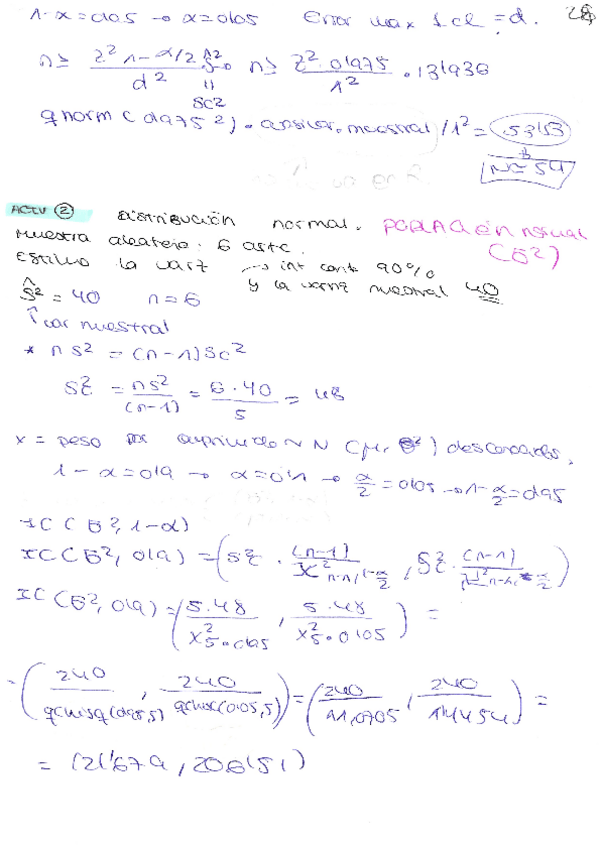 1-α=0'95 → α=0'05 Error max 1cl = d. 28
n ≥ z² 1-α/2 / d² · ŝ² → n ≥ z² 0'975 / 1² · 13'936
sc²
qnorm(0'975²) · / 1² = 53'53
N = 54
ACTV ② Distribución normal. POBLACIÓN normal
muestra aleatoria. 6 (σ²)
la → int conf 90%
ŝ² = 40 n = 6 y la muestral 40
↑ var muestral
* n s² = (n-1) sc²
sc² = ns² / (n-1) = 6·40 / 5 = 48
x = peso por ~ N (μ, σ²) desconocidos,
1-α = 0'9 → α = 0'1 → α/2 = 0'05 → 1-α/2 = 0'95
IC (σ², 1-α)
IC (σ², 0'9) = (sc² · (n-1) / X² n-1, 1-α/2 , sc² · (n-1) / X² n-1, α/2)
IC (σ², 0'9) = (5·48 / X² 5·0'95 , 5·48 / X² 5·0'05) =
= (240 / qchisq(0'95,5) , 240 / qchisq(0'05,5)) = (240 / 11,0705 , 240 / 1'1454) =
= (21'679, 206'51)